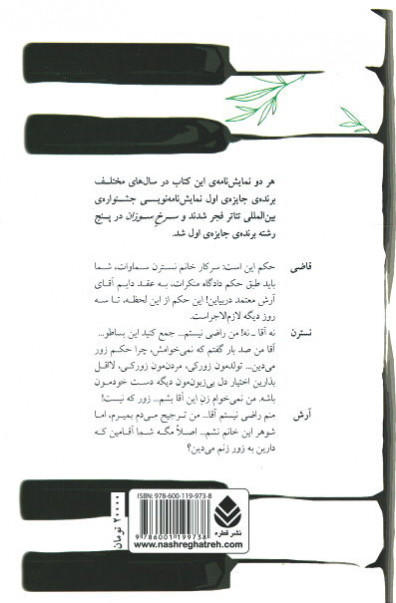 هر دو نمایش‌نامه‌ی این کتاب در سال‌های مختلف
برنده‌ی جایزه‌ی اول نمایش‌نامه‌نویسی جشنواره‌ی
بین‌المللی تئاتر فجر شدند و سرخِ سوزان در پنج
رشته برنده‌ی جایزه‌ی اول شد.
قاضی حکم این است: سرکار خانم نسترن سماوات، شما
باید طبق حکم دادگاه منکرات، به عقد دایم آقای
آرش معتمد دربیاین! این حکم از این لحظه، تا سه
روز دیگه لازم‌الاجراست.
نسترن نه آقا ـ نه! من راضی نیستم... جمع کنید این بساطو...
آقا من صد بار گفتم که نمی‌خوامش، چرا حکم زور
می‌دین... تولدمون زورکی، مردن‌مون زورکی، لااقل
بذارین اختیار دل بی‌زبون‌مون دیگه دست خودمون
باشه. من نمی‌خوام زنِ این آقا بشم... زور که نیست!
آرش منم راضی نیستم آقا... من ترجیح می‌دم بمیرم، اما
شوهر این خانم نشم... اصلاً مگه شما آقامین که
دارین به زور زنم می‌دین؟
۲۰۰۰۰ تومان
ISBN: 978-600-119-973-8
9 786001 199738
نشر قطره
www.nashreghatreh.com